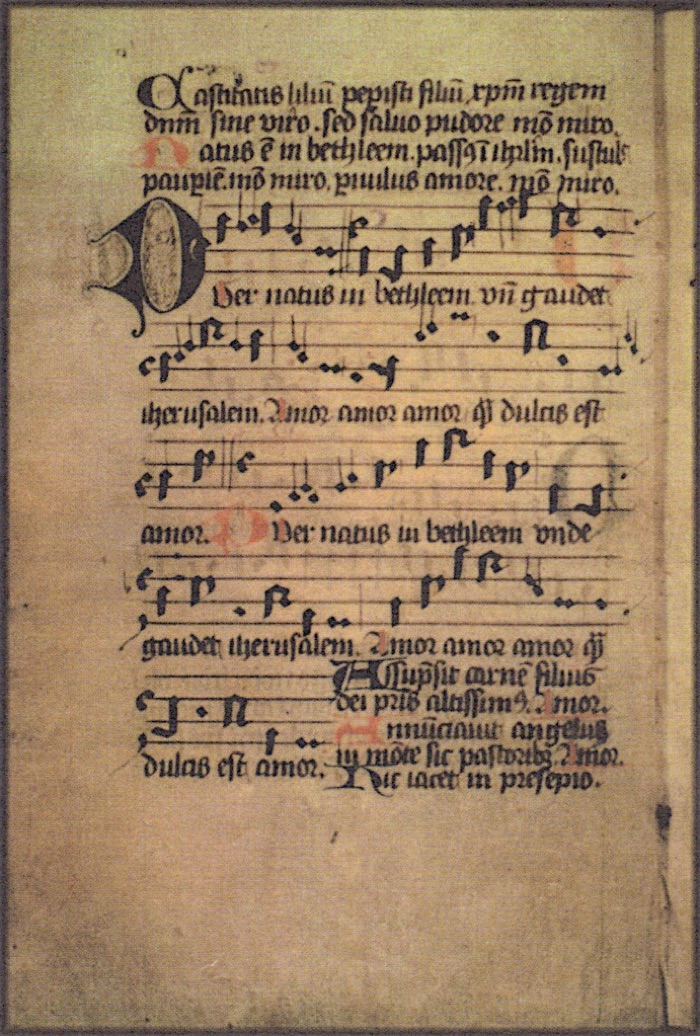 Castitatis liliū peperisti filiū xpm̄ regem
dnm̄ sine viro. sed saluo pudore mō miro.
Natus ē in bethleem. passꝯ ī ihrlm̄.
mō miro. puulus amore. mō miro.
Puer natus in bethleem vn̄ gaudet
iherusalem. Amor amor amor q̄ȝ dulcis est
amor. Puer natus in bethleem vnde
gaudet iherusalem. Amor amor amor q̄ȝ
Assūpsit carnē filius
dei pr̄is altissimꝯ. Amor.
Annūciauit angelus
dulcis est amor. in mōte sic pastoribꝫ. Amor.
Hic iacet in presepio.